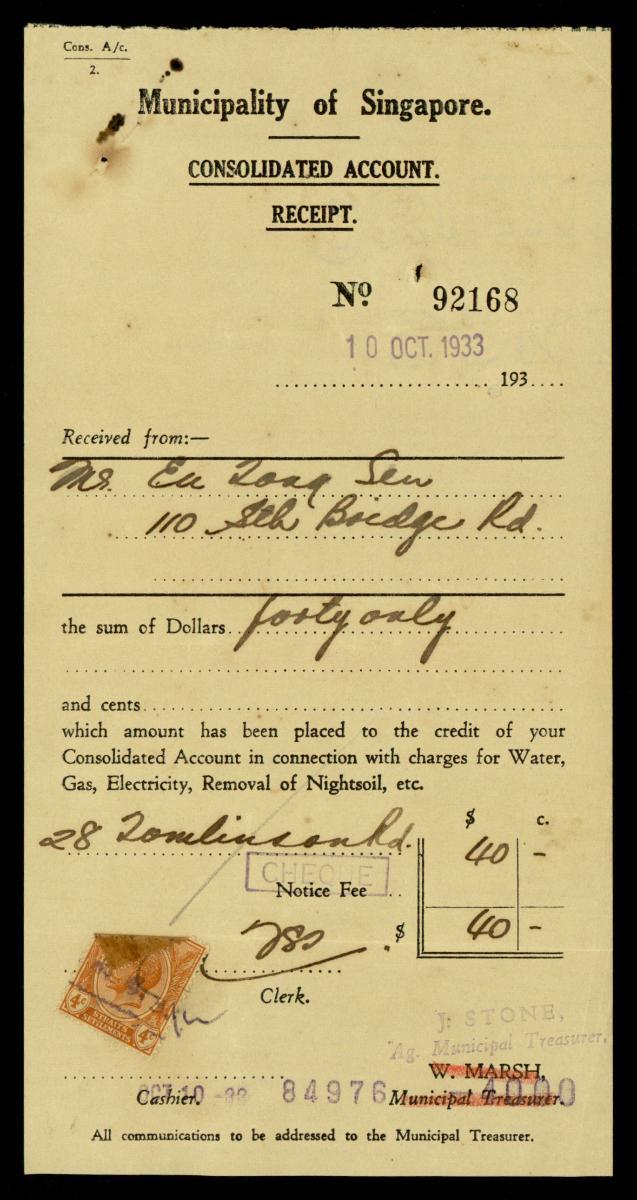 Cons. A/c.
2.
Municipality of Singapore.
CONSOLIDATED ACCOUNT.
RECEIPT.
No. 92168
10 OCT. 1933
193
Received from:—
Mr. Eu Tong Sen
110 Sth Bridge Rd.
the sum of Dollars forty only
and cents
which amount has been placed to the credit of your
Consolidated Account in connection with charges for Water,
Gas, Electricity, Removal of Nightsoil, etc.
$ c.
28 Tomlinson Rd. 40 -
CHEQUE
Notice Fee
$ 40 -
Clerk.
4c STRAITS SETTLEMENTS 4c
J. STONE,
Ag. Municipal Treasurer.
W. MARSH,
OCT 10 -33 84976 4000
Cashier. Municipal Treasurer.
All communications to be addressed to the Municipal Treasurer.